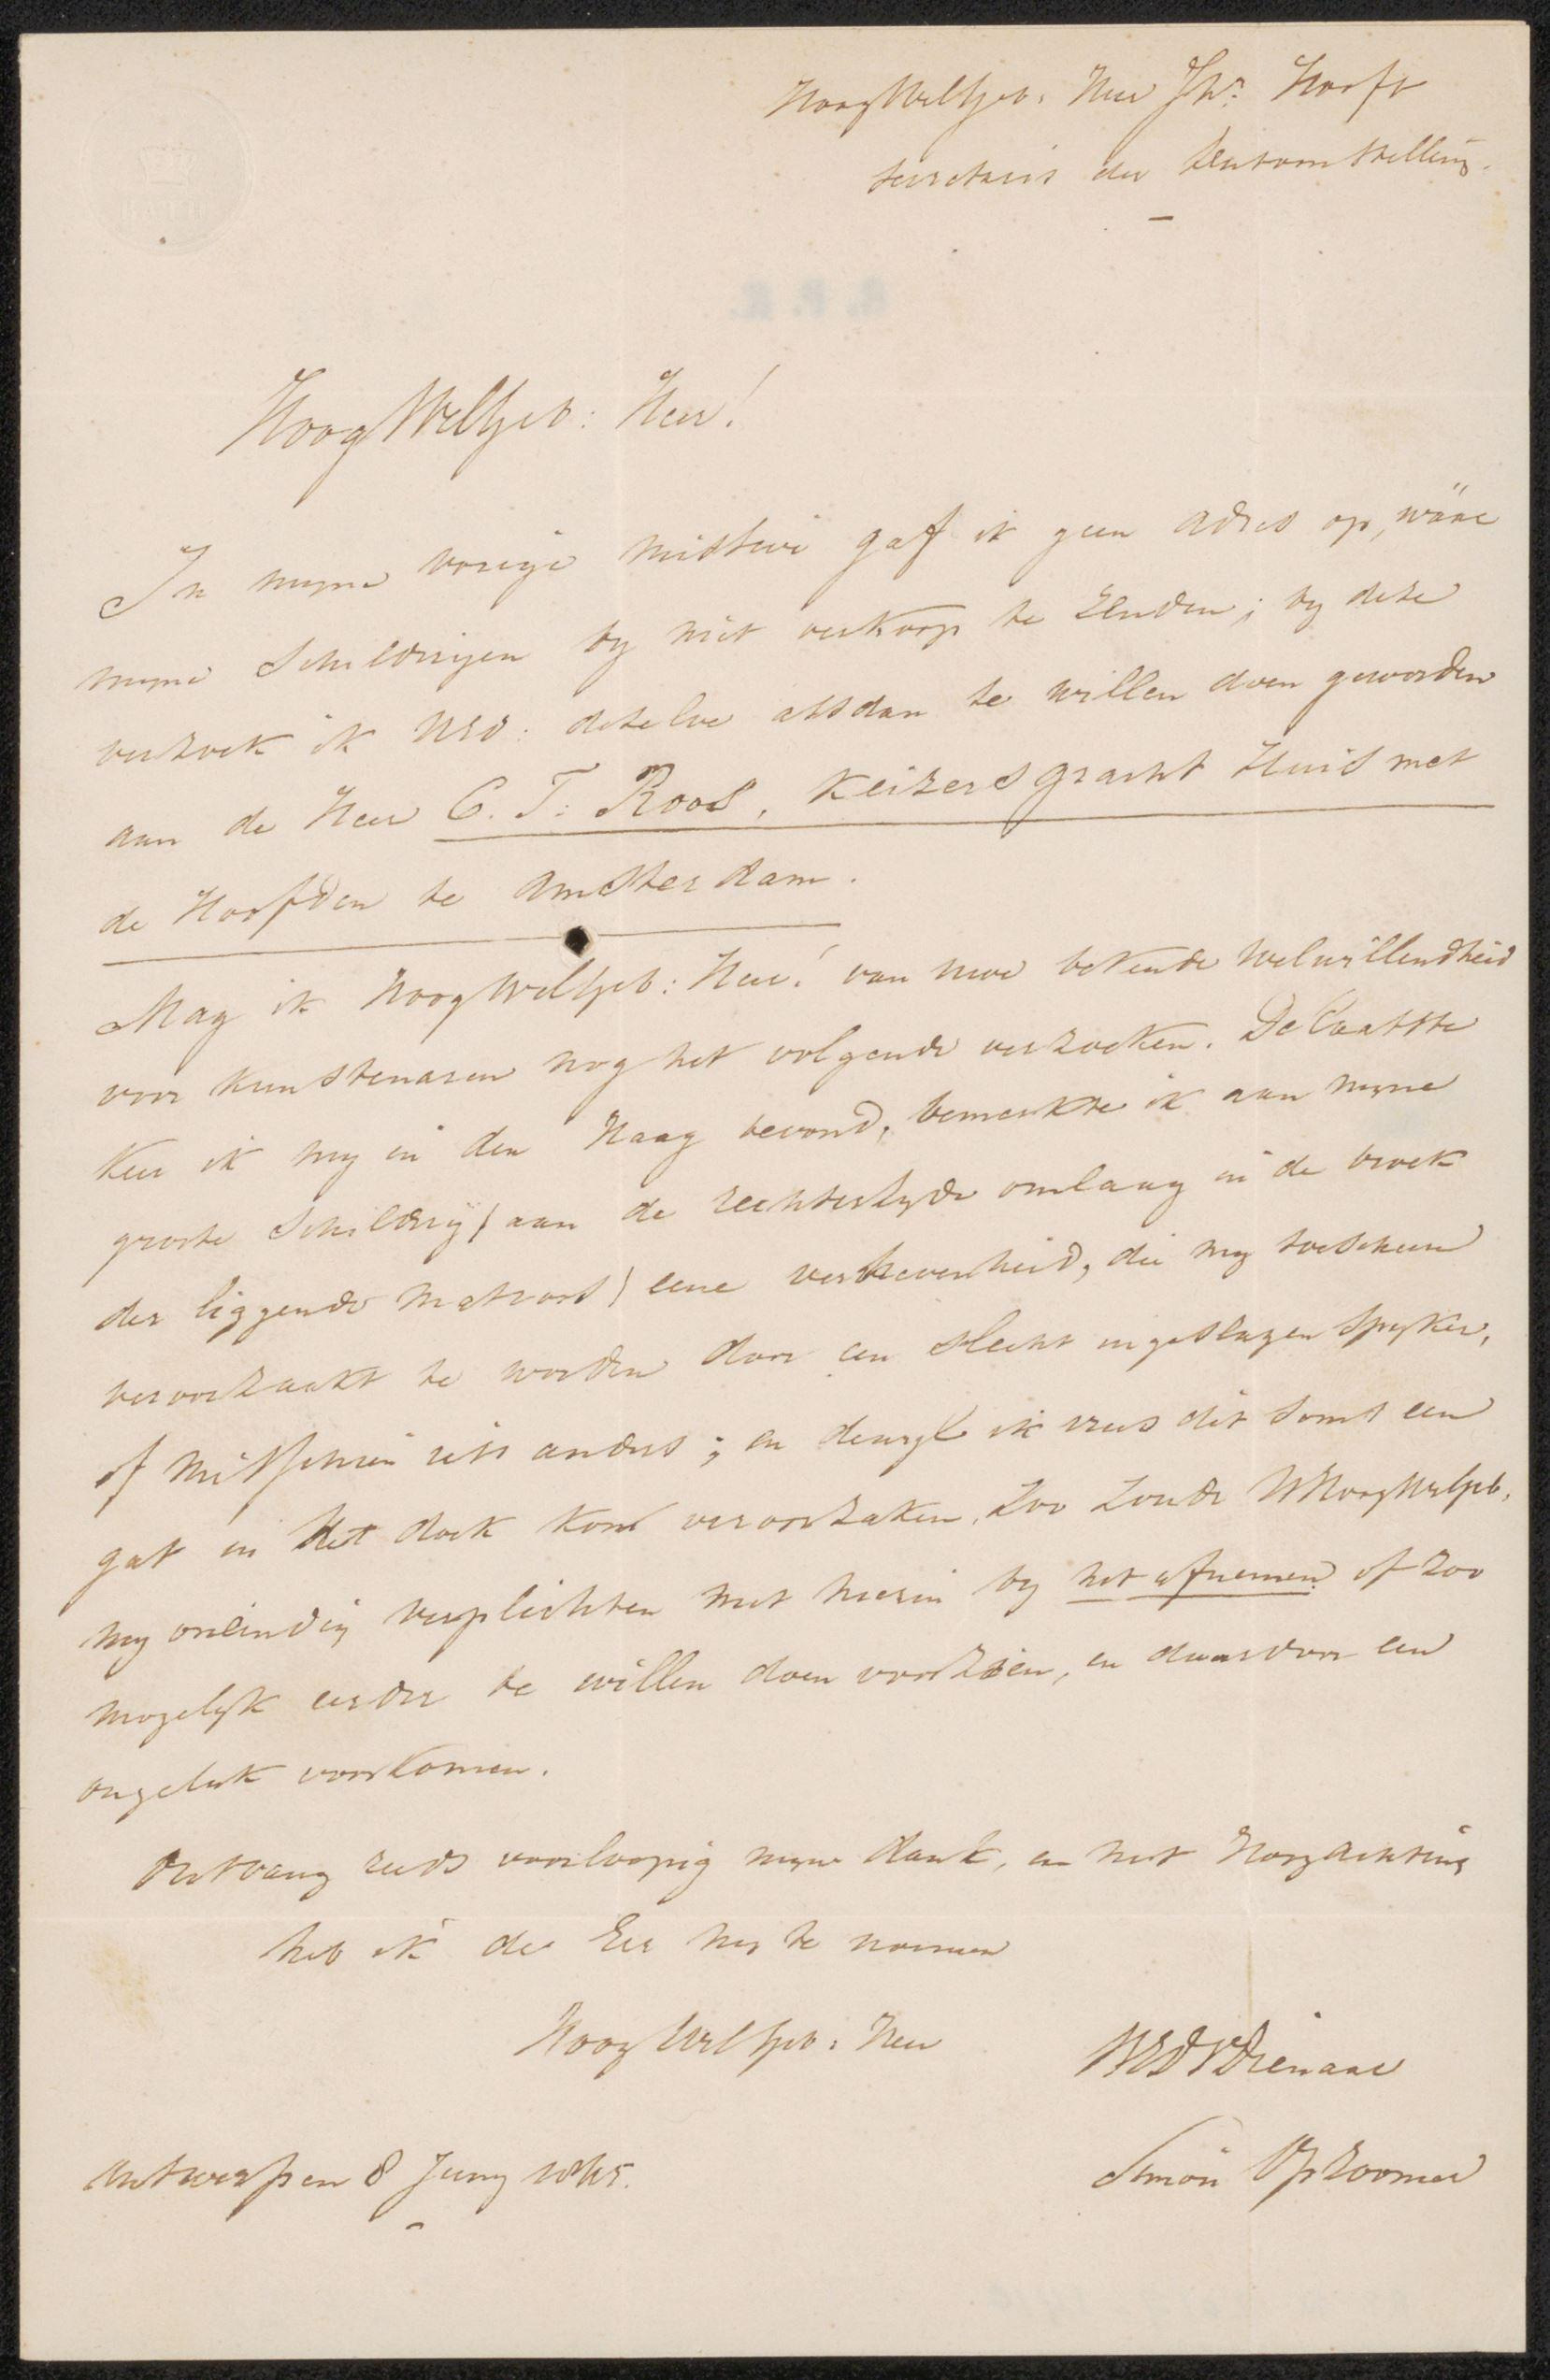 HoogWelgeb. Heer Jhr. Hooft
secretaris der tentoonstelling.
HoogWelgeb: Heer!
In myne vorige missive gaf ik geen adres op, wäar
myne Schilderyen by niet verkoop te zenden; by deze
verzoek ik UEd: dezelve alsdan te willen doen geworden
aan de Heer C. F: Roos, Keizersgracht Huis met
de Hoofden te Amsterdam.
Mag ik HoogWelgeb: Heer! van uwe bekende welwillendheid
voor kunstenaren nog het volgende verzoeken. De laatste
keer ik my in den Haag bevond, bemerkte ik aan myne
groote Schildery (aan de rechterzyde omlaag in de broek
der liggende matroos) eene verhevenheid, die my toescheen
veroorzaakt te worden door een slecht ingeslagen spyker,
of misschien iets anders; en dewyl ik vrees dit soms een
gat in het doek kon veroorzaken, zoo zoude UHoogWelgeb,
my oneindig verplichten met hierin by het afnemen of zoo
mogelyk eerder te willen doen voorzien, en daardoor een
ongeluk voorkomen.
Ontvang reeds voorloopig myne dank, en met Hoogachting
heb ik de Eer my te noemen
HoogWelgeb: Heer
UEdDDienaar
Antwerpen 8 Juny 1845.
Simon Opzoomer